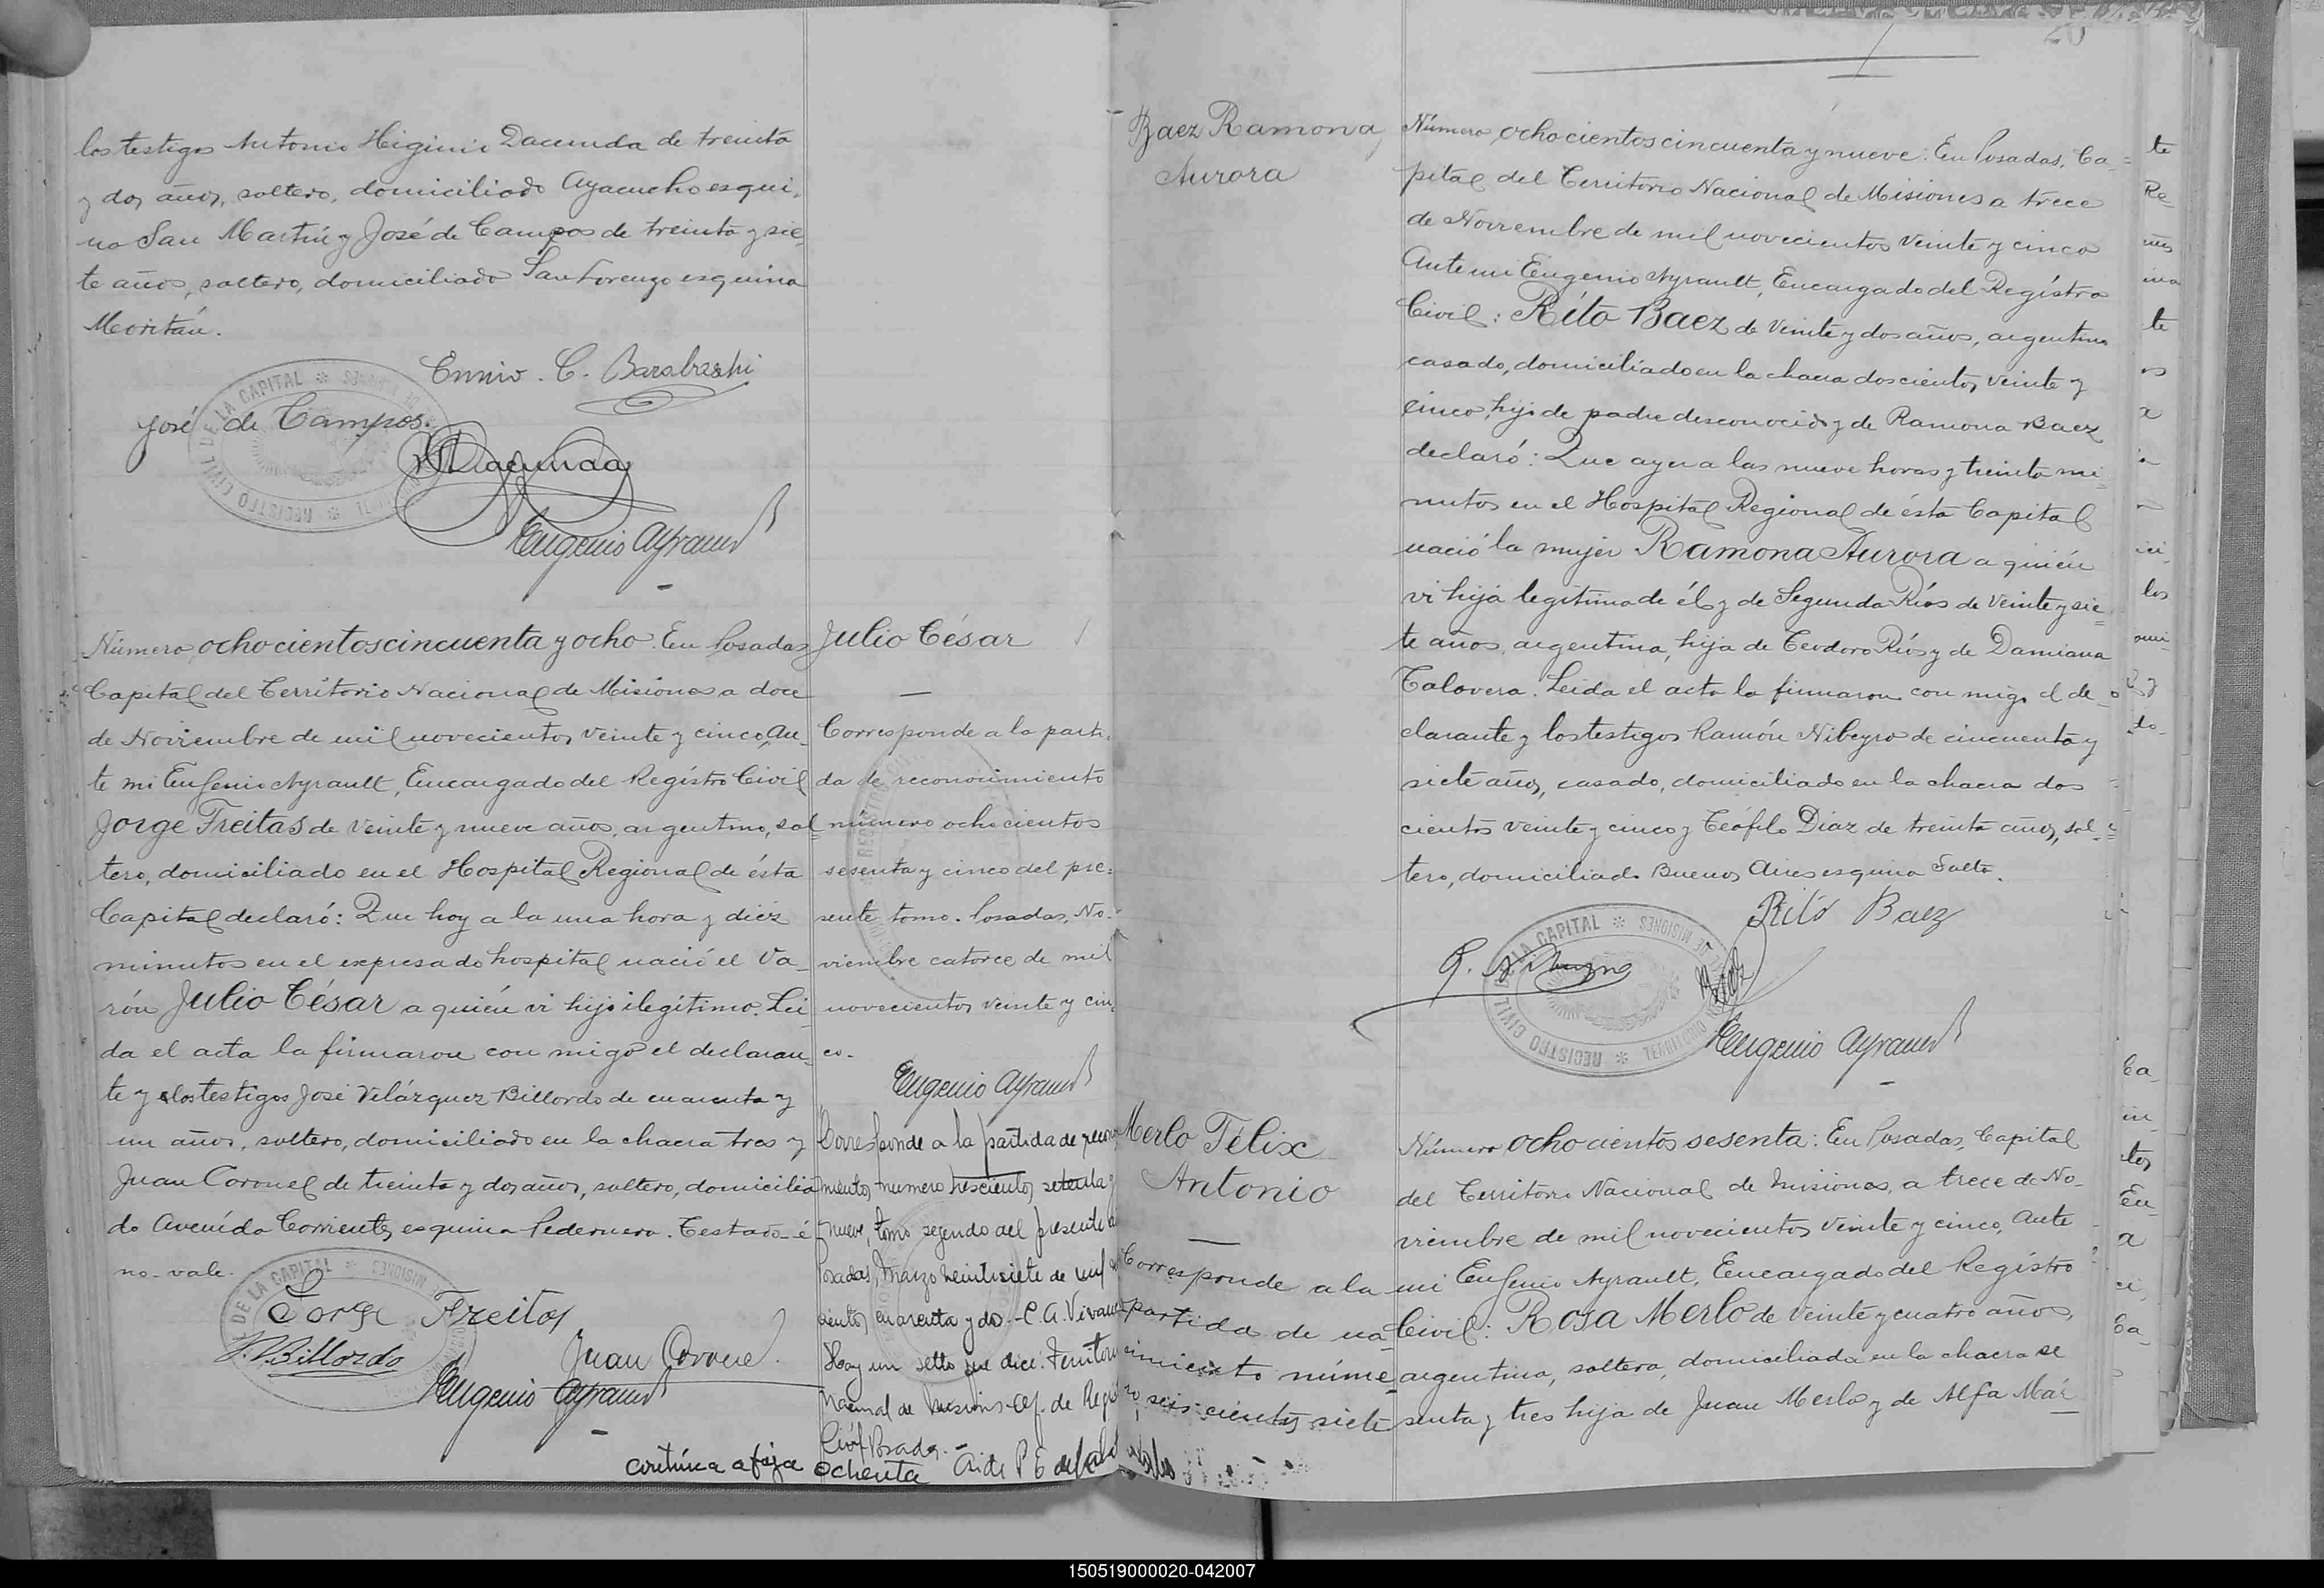 los testigos Antonio Higinio Dacunda de treinta
y dos años, soltero, domiciliado Ayacucho esqui-
na San Martín y José de Campos de treinta y sie-
te años, soltero, domiciliado San Lorenzo esquina
Moritán.
Ennio. C. Barabaschi
José de Campos.
Dacunda
Eugenio Ayrault
Número ochocientos cincuenta y ocho. En Posadas
Capital del Territorio Nacional de Misiones a doce
de Noviembre de mil novecientos veinte y cinco, An-
te mi Eugenio Ayrault, Encargado del Registro Civil
Jorge Freitas de veinte y nueve años, argentino, sol-
tero, domiciliado en el Hospital Regional de ésta
Capital declaró: Que hoy a la una hora y diez
minutos en el expresado hospital nació el va-
rón Julio César a quién vi hijo ilegítimo. Lei-
da el acta la firmaron con migo el declaran-
te y los testigos José Velázquez Billordo de cuarenta y
un años, soltero, domiciliado en la chacra tres y
Juan Coronel de treinta y dos años, soltero, domicilia
do Avenida Corrientes esquina Pedernera. Testado-é
no-vale.
Jorge Freitas
J. V. Billordo
Juan Coronel.
Eugenio Ayrault
Julio César
Corresponde a la parti-
da de reconocimiento
número ochocientos
sesenta y cinco del pre-
sente tomo. Posadas, No-
viembre catorce de mil
novecientos veinte y cin-
co.
Eugenio Ayrault
Corresponde a la partida de recono
miento numero trescientos setenta y
nueve, tomo segundo del presente
Posadas, Marzo veintisiete de mil
cientos cuarenta y dos.- C. A. Vivan
Hay un sello que dice: Territor
Nacional de Misiones- Of. de Reg
Civil Posadas.-
continua a foja ochenta
REGISTRO CIVIL DE LA CAPITAL * TERRITORIO DE MISIONES *
Baez Ramona
Aurora
Número ochocientos cincuenta y nueve: En Posadas, Ca-
pital del Territorio Nacional de Misiones a trece
de Noviembre de mil novecientos veinte y cinco
Ante mi Eugenio Ayrault, Encargado del Registro
Civil: Rito Baez de veinte y dos años, argentino
casado, domiciliado en la chacra doscientos veinte y
cinco, hijo de padre desconocido y de Ramona Baez
declaró: Que ayer a las nueve horas y treinta mi-
nutos en el Hospital Regional de ésta Capital
nació la mujer Ramona Aurora a quién
vi hija legítima de él y de Segunda Ríos de veinte y sie-
te años, argentina, hija de Teodoro Ríos y de Damiana
Talavera. Leida el acta la firmaron con migo el de-
clarante y los testigos Ramón Nibeyro de cincuenta y
siete años, casado, domiciliado en la chacra dos
cientos veinte y cinco y Teófilo Díaz de treinta años, sol-
tero, domiciliado Buenos Aires esquina Salta.
Rito Baez
Eugenio Ayrault
Merlo Félix
Antonio
Corresponde a la
partida de na-
cimiento núme-
ro seis cientos siete
Número ochocientos sesenta: En Posadas, Capital
del Territorio Nacional de Misiones, a trece de No-
viembre de mil novecientos veinte y cinco, Ante
mi Eugenio Ayrault, Encargado del Registro
Civil: Rosa Merlo de veinte y cuatro años,
argentina, soltera, domiciliada en la chacra se
senta y tres hija de Juan Merlo y de Alfa Már
150519000020-042007